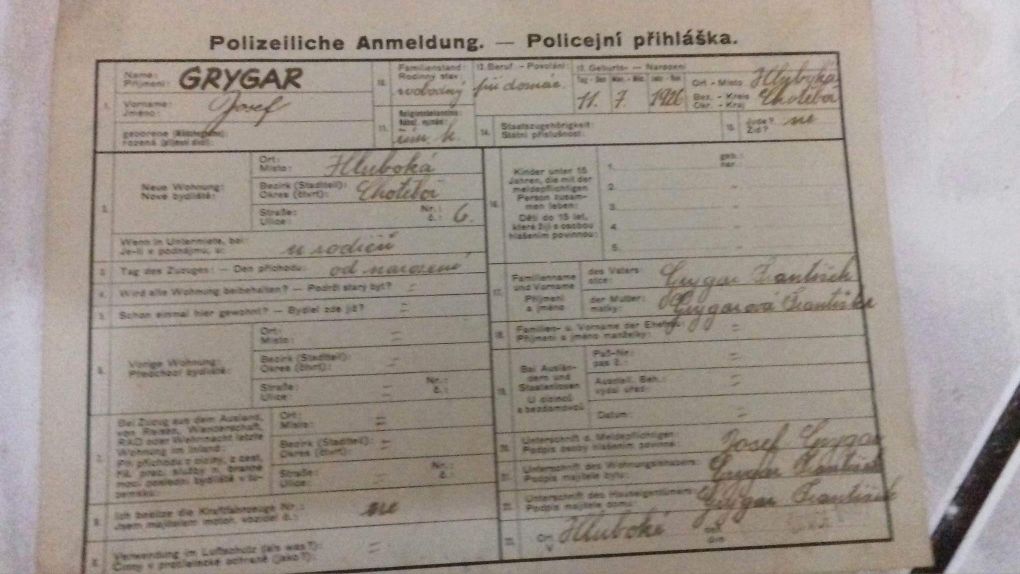 Polizeiliche Anmeldung. — Policejní přihláška.
1. Name: Příjmení: GRYGAR
Vorname: Jméno: Josef
geborene
rozená
10. Familienstand: Rodinný stav: svobodný
11. Religionsbekenntnis: Nábož. vyznání: řím. k.
12. Beruf. - Povolání: při domác.
13. Geburts- — Narození
Tag - Den Mon. - Měs. Jahr - Rok
11. 7. 1926
Ort - Místo Hluboká
Bez. - Kreis Okr. - Kraj Chotěboř
14. Staatszugehörigkeit: Státní příslušnost:
15. Jude? Žid? ne
2. Neue Wohnung: Nové bydliště:
Ort: Místo: Hluboká
Bezirk (Stadtteil): Okres (čtvrť): Chotěboř
Straße: Ulice: Nr.: č.: 6.
Wenn in Untermiete, bei: Je-li v podnájmu, u: u rodičů
3. Tag des Zuzuges: — Den příchodu: od narození
4. Wird alte Wohnung beibehalten? — Podrží starý byt? =
5. Schon einmal hier gewohnt? — Bydlel zde již? =
6. Vorige Wohnung: Předchozí bydliště:
Ort: Místo: =
Bezirk (Stadtteil): Okres (čtvrť): =
Straße: Ulice: = Nr.: č.:
7. Bei Zuzug aus dem Ausland, von Reisen, Wanderschaft, RAD oder Wehrmacht letzte Wohnung im Inland:
Při příchodu z ciziny, z cest, prac. služby n. branné moci poslední bydliště v tuzemsku:
Ort: Místo: =
Bezirk (Stadtteil): Okres (čtvrť): =
Straße: Ulice: = Nr.: č.:
8. Ich besitze die Kraftfahrzeuge Nr.: Jsem majitelem motor. vozidel č.: ne
9. Verwendung im Luftschutz (als was?): Činný v protiletecké ochraně (jako?): =
16. Kinder unter 15 Jahren, die mit der meldepflichtigen Person zusammen leben:
Děti do 15 let, které žijí s osobou hlášením povinnou:
geb.: nar.:
1.
2.
3.
4.
5.
17. Familienname und Vorname
Příjmení a jméno
des Vaters: otce: Grygar František
der Mutter: matky: Grygarová Františka
18. Familien- u. Vorname der Ehefrau: Příjmení a jméno manželky: =
19. Bei Ausländern und Staatenlosen
U cizinců a bezdomovců
Paß-Nr: pas č.: =
Ausstell. Beh.: vydal úřad: =
Datum: =
20. Unterschrift d. Meldepflichtigen: Podpis osoby hlášením povinné: Josef Grygar
21. Unterschrift des Wohnungsinhabers: Podpis majitele bytu: Grygar František
22. Unterschrift des Hauseigentümers: Podpis majitele domu: Grygar František
23. Ort V Hluboké dne